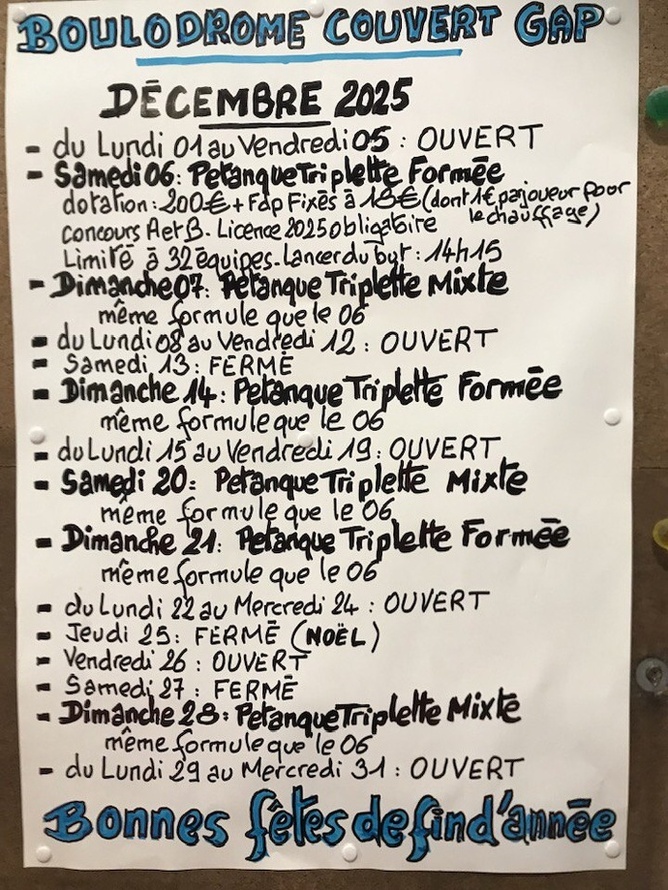 BOULODROME COUVERT GAP
DÉCEMBRE 2025
- du Lundi 01 au Vendredi 05 : OUVERT
- Samedi 06 : Petanque Triplette Formée
dotation : 200€ + Fdp Fixés à 18€ (dont 1€ par joueur pour
le chauffage)
concours A et B. Licence 2025 obligatoire
Limité à 32 équipes. Lancer du but : 14h15
- Dimanche 07 : Petanque Triplette Mixte
même formule que le 06
- du Lundi 08 au Vendredi 12 : OUVERT
- Samedi 13 : FERMÉ
- Dimanche 14 : Petanque Triplette Formée
même formule que le 06
- du Lundi 15 au Vendredi 19 : OUVERT
- Samedi 20 : Petanque Triplette Mixte
même formule que le 06
- Dimanche 21 : Petanque Triplette Formée
même formule que le 06
- du Lundi 22 au Mercredi 24 : OUVERT
- Jeudi 25 : FERMÉ (NOËL)
- Vendredi 26 : OUVERT
- Samedi 27 : FERMÉ
- Dimanche 28 : Petanque Triplette Mixte
même formule que le 06
- du Lundi 29 au Mercredi 31 : OUVERT
Bonnes fêtes de fin d'année